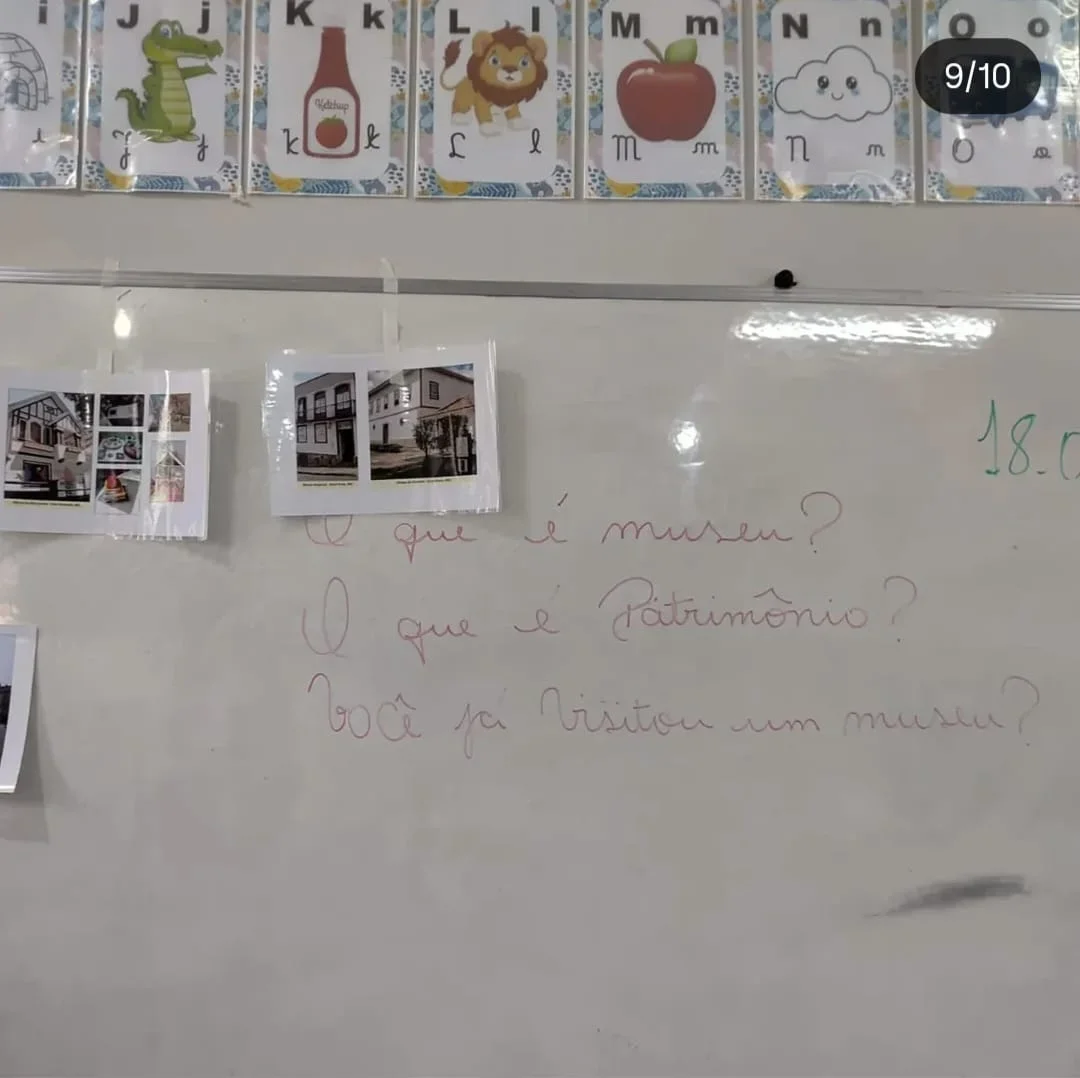 i
J j
K k
L l
M m
N n
O o
9/10
Ketchup
i
J j
K k
L l
M m
N n
O o
18.0
O que é museu?
O que é Patrimônio?
Você já visitou um museu?